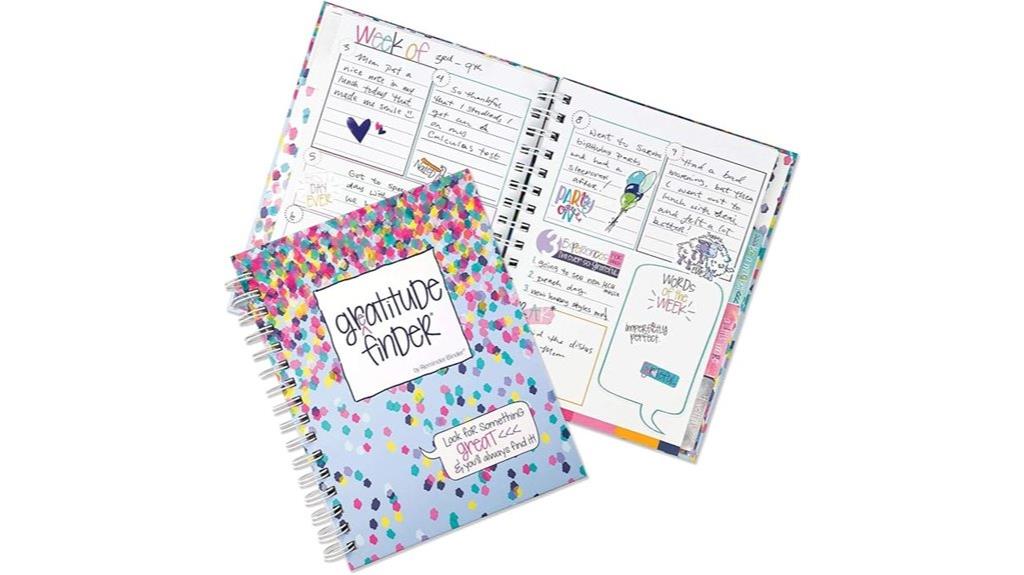 Week of 3rd - 9th
3
Mom put a
nice note in my
lunch today that
made me smile
4
So thankful
that I studied/
got an A
on my
Calculus test
5
DAY
EVER
Got to spe
day wit
we
6
8
Went to Sarah's
birthday party
and had a
sleepover
after!
PARTY
ON
9
Had a bad
morning, but then
I went out to
lunch with
and felt a lot
better!
3 EXPERIENCES
I'm ever-so-grateful
1. going to see new
2. beach day
3. New
the dishes
Mom
WORDS
OF THE
WEEK
imperfectly
perfect
grateful
greatitude
finder®
by Reminder Binder®
Look for something
great <<<
& you'll always find it!